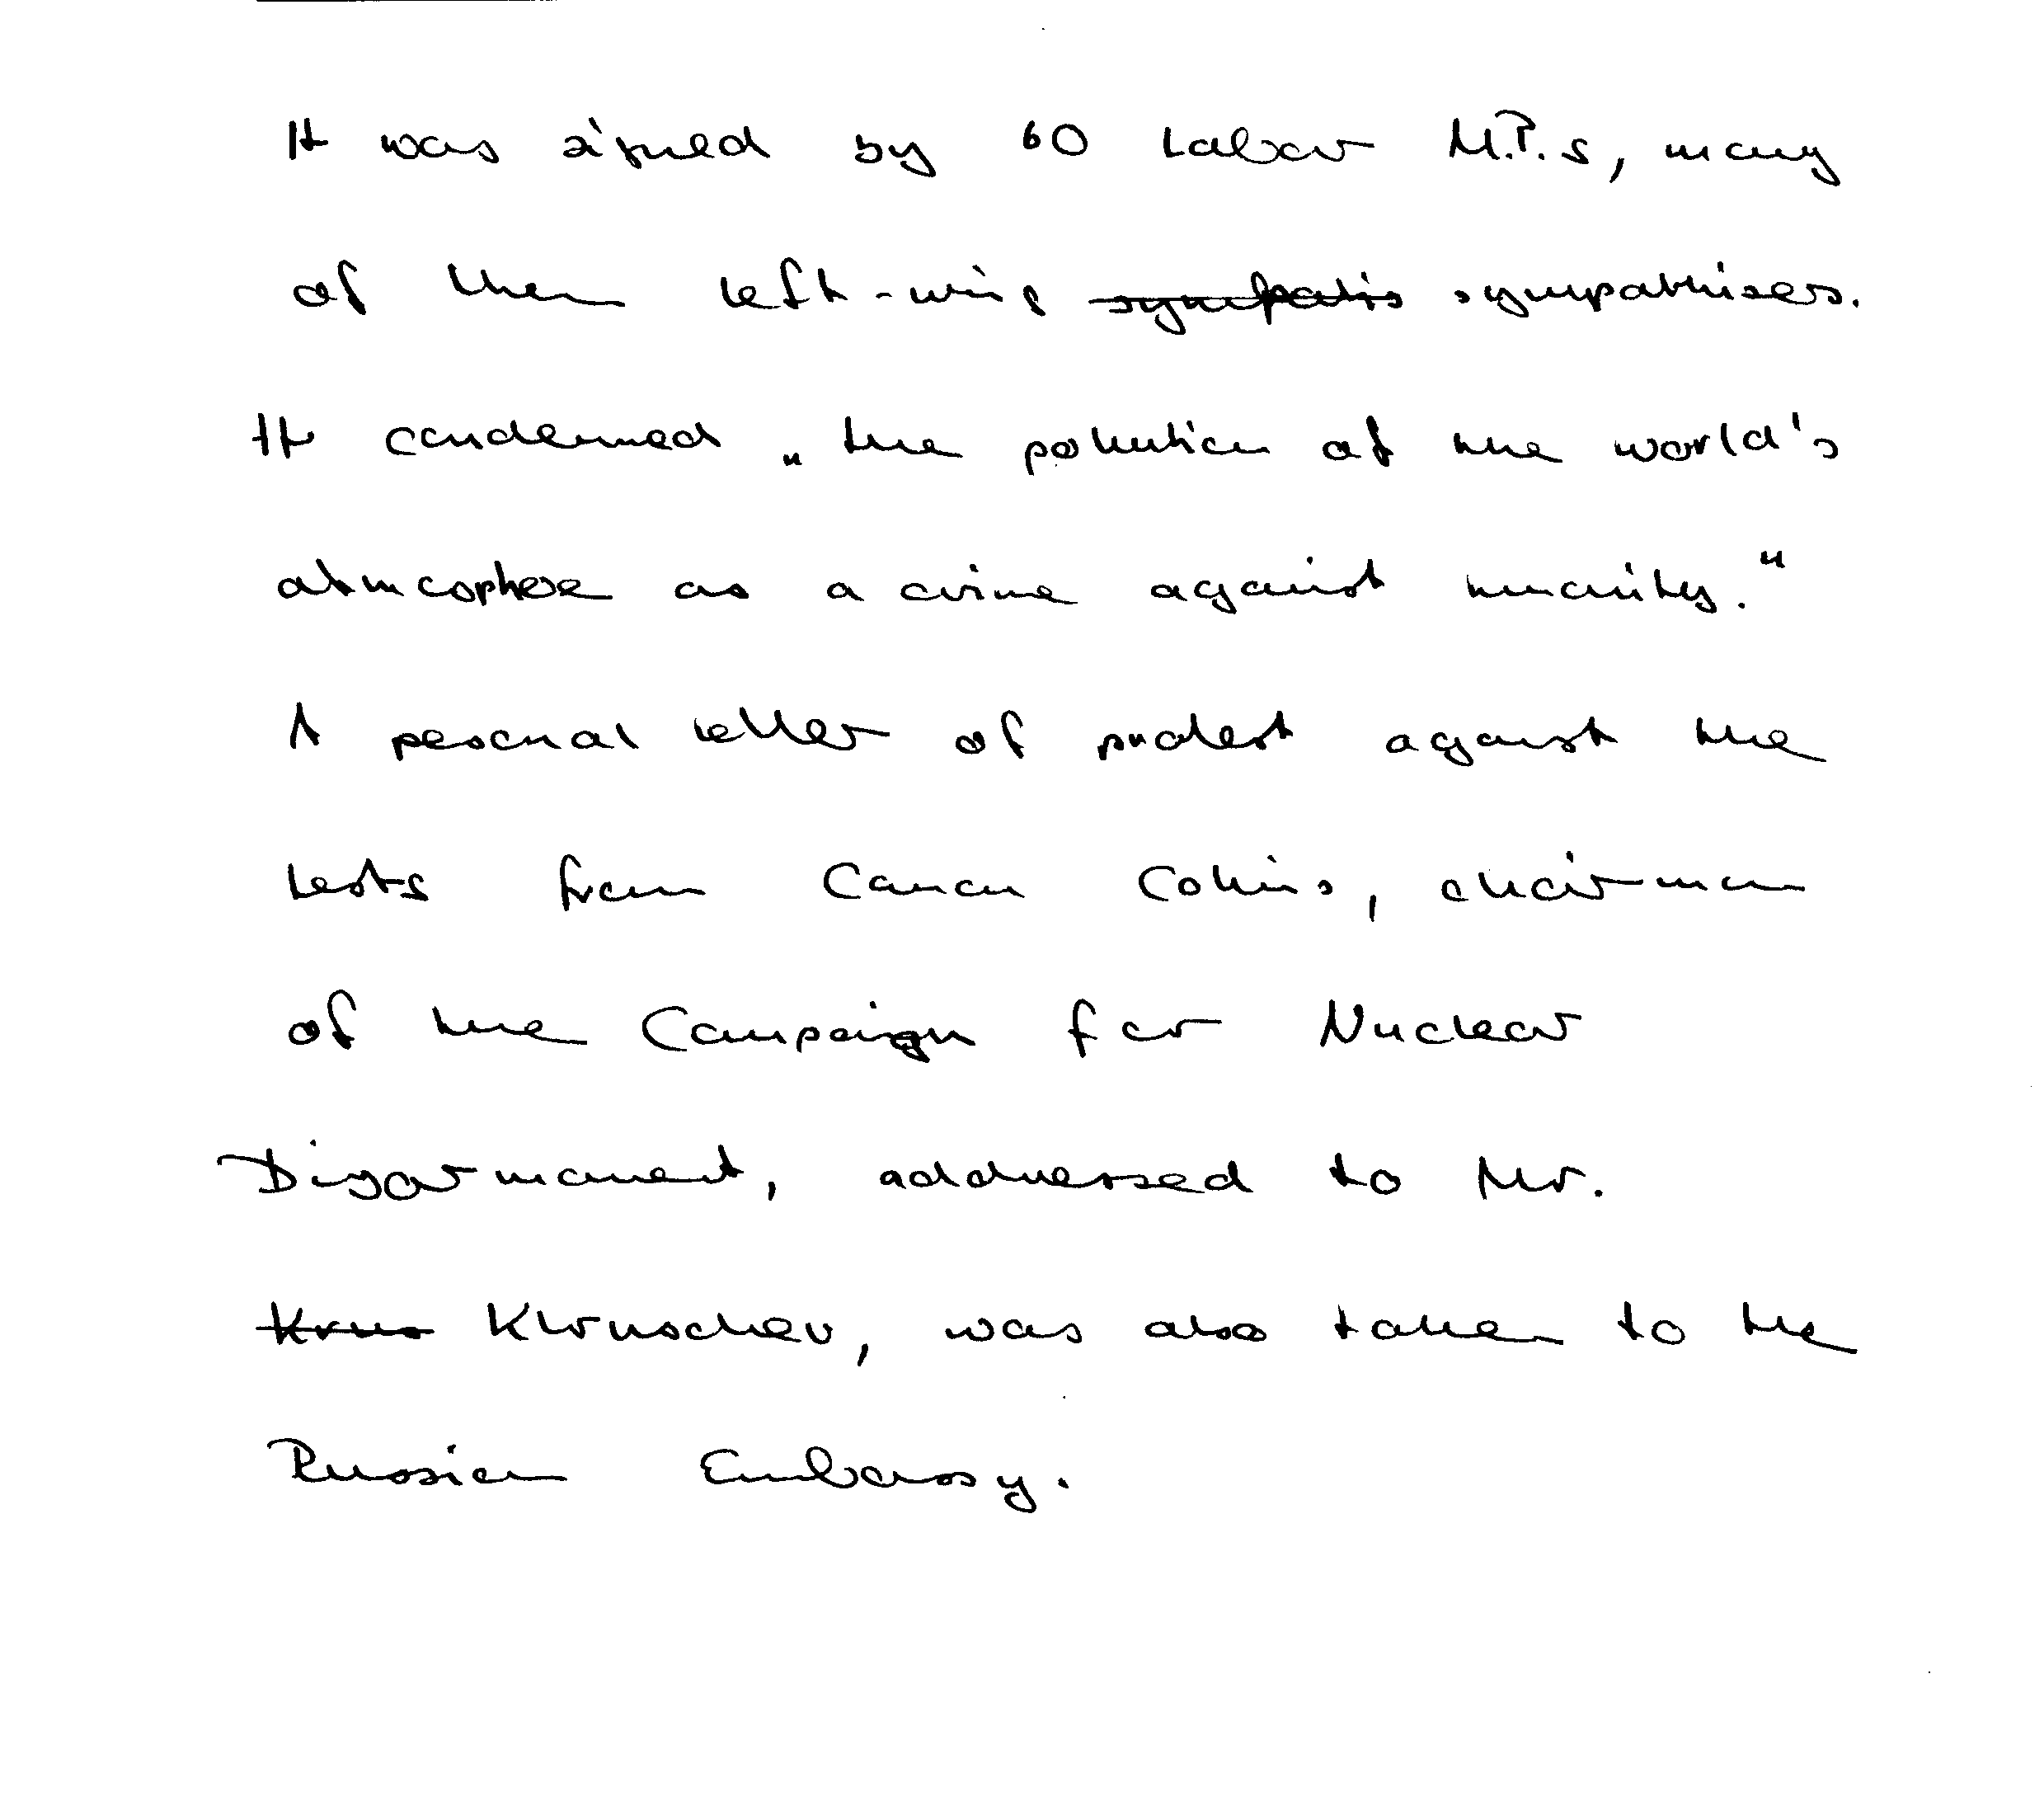 It was signed by 60 Labour M.P.s, many
of them left-wing sympathisers.
It condemned „the pollution of the world's
atmosphere as a crime against humanity."
A personal letter of protest against the
tests from Canon Collins, chairman
of the Campaign for Nuclear
Disarmament, addressed to Mr.
Khruschev, was also taken to the
Russian Embassy.